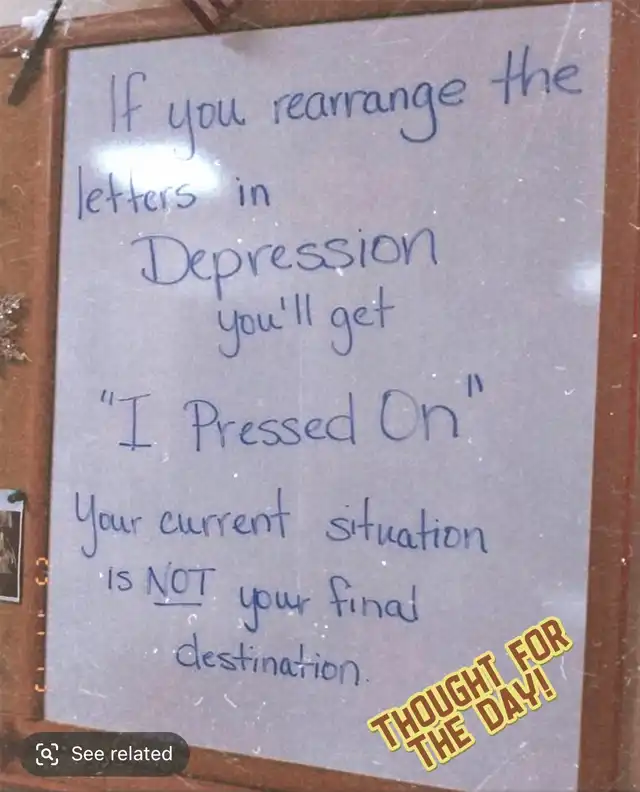 If you rearrange the
letters in
Depression
you'll get
"I Pressed On"
Your current situation
is NOT your final
destination.
THOUGHT FOR
THE DAY!
See related